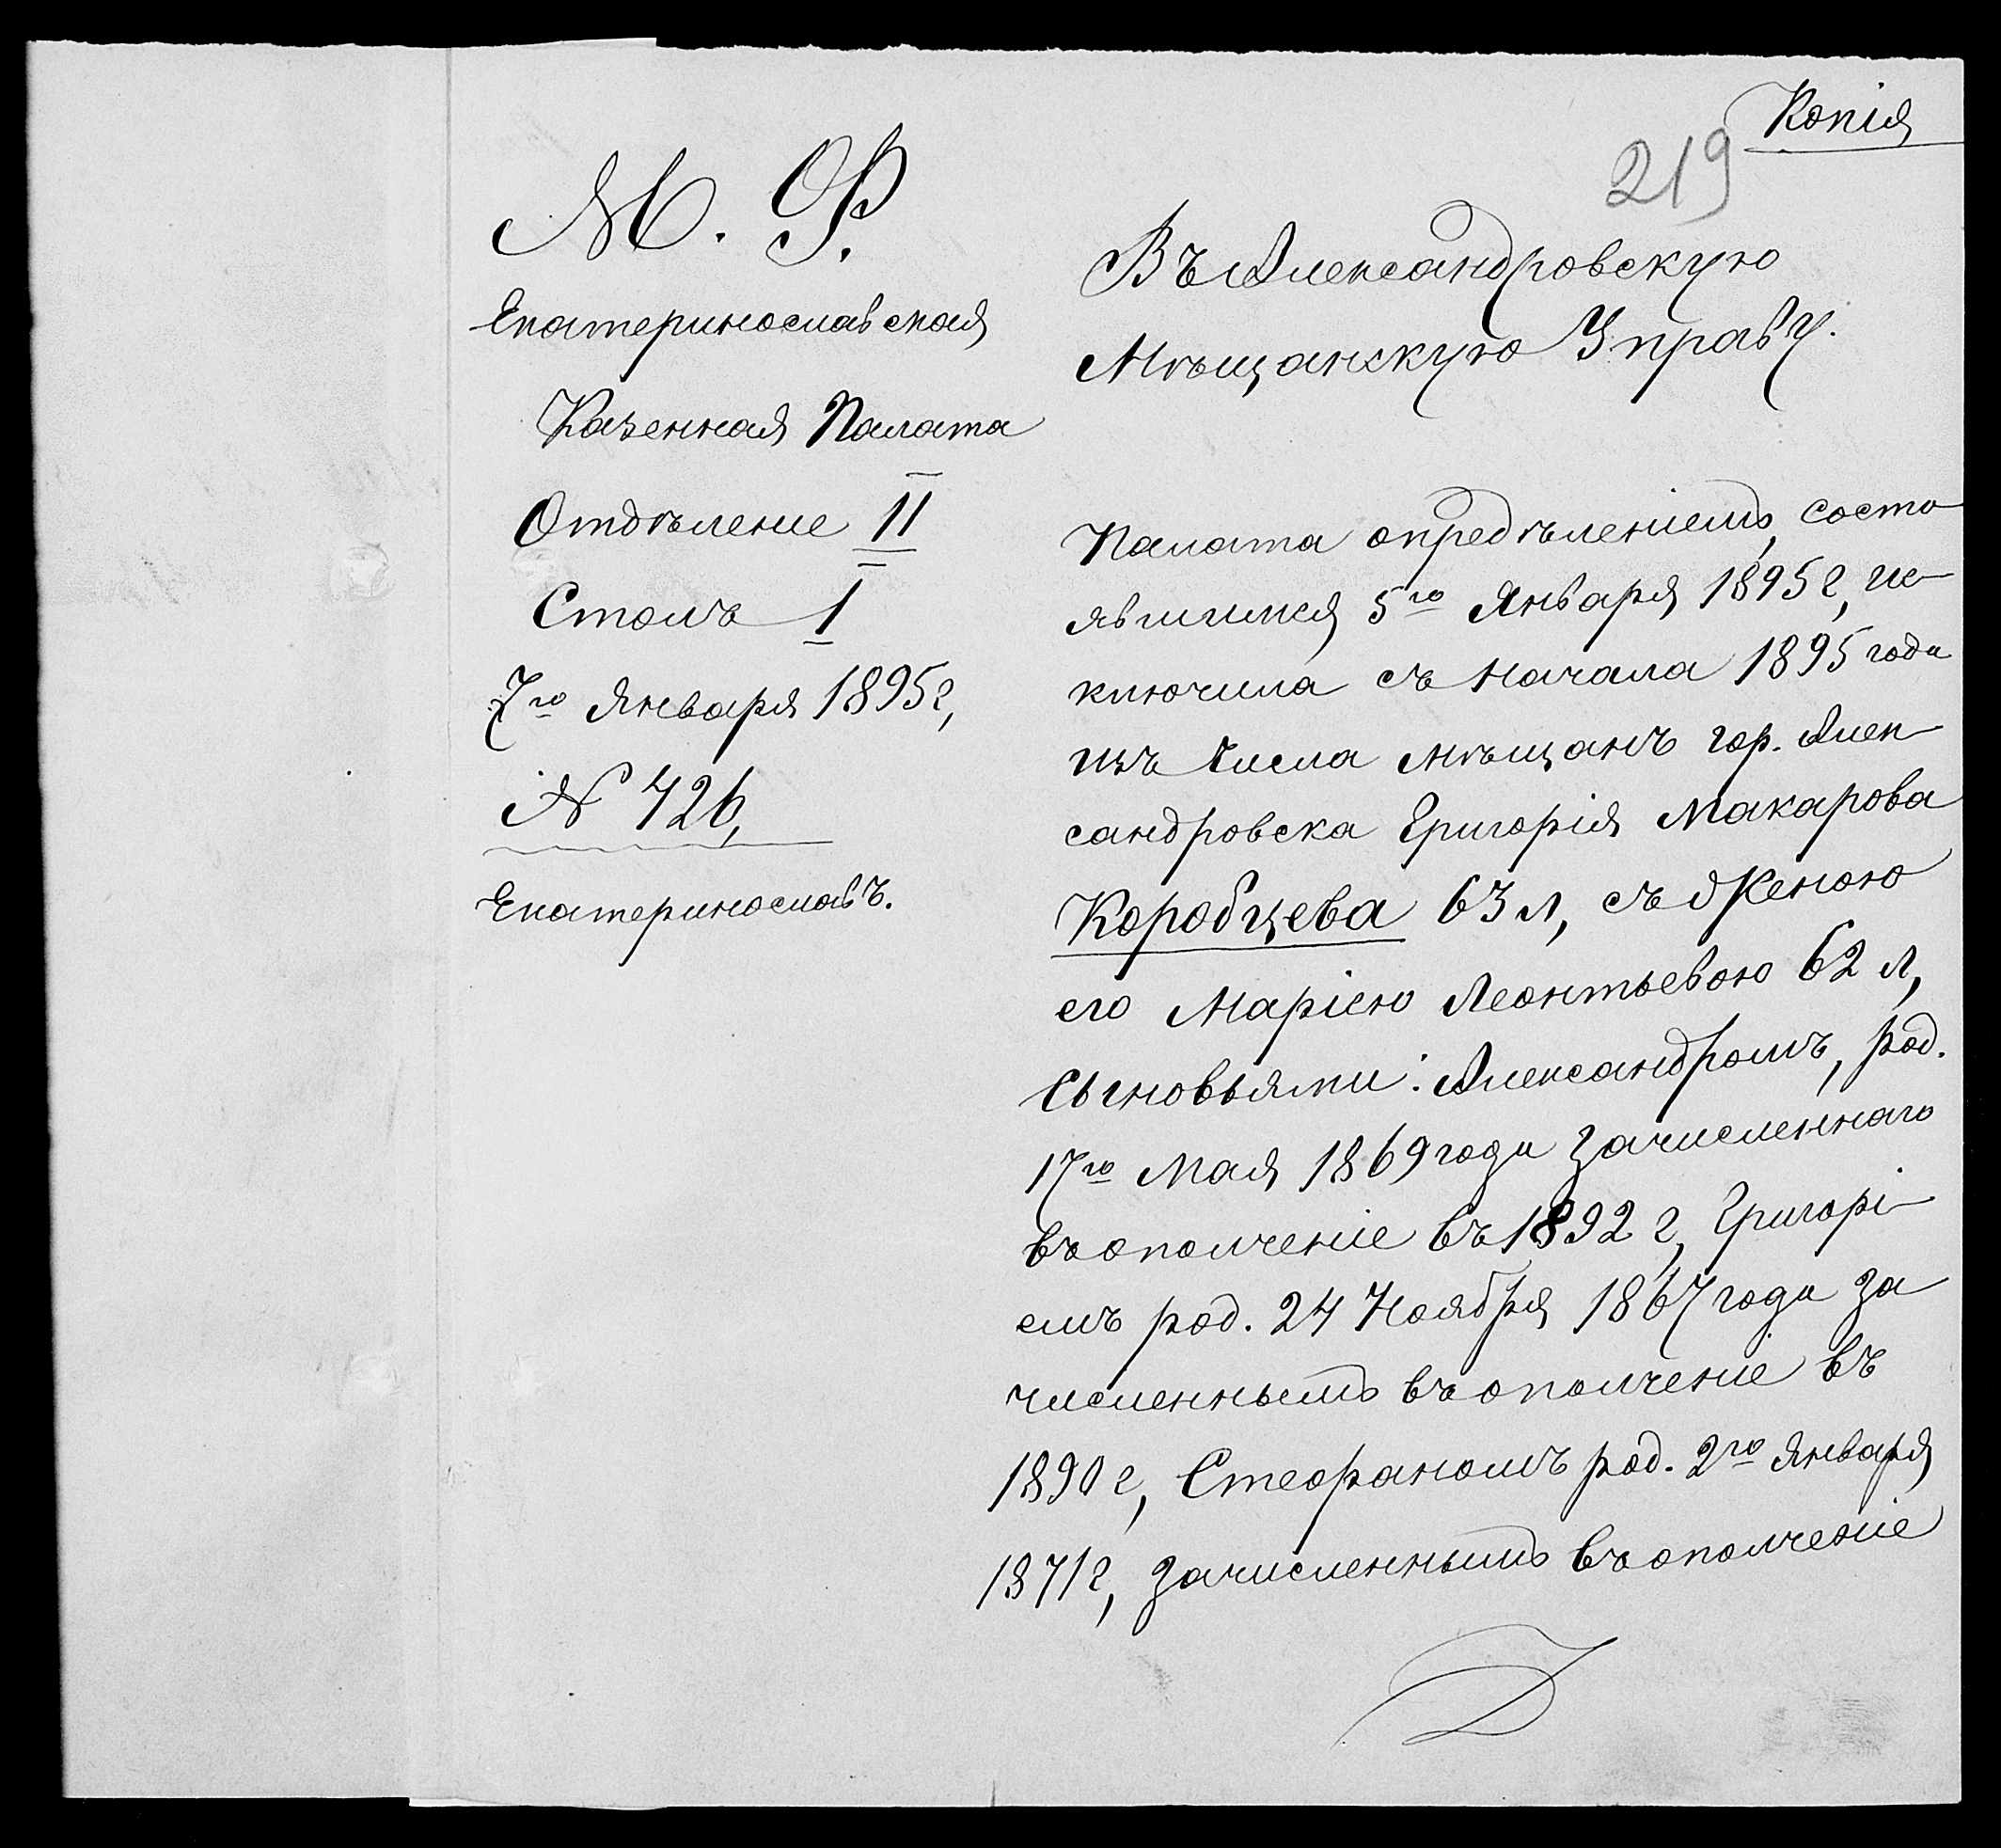 Копія
219
М. Ф.
Екатеринославская
Казенная Палата
Отдѣленіе II
Столъ 1
7го Января 1895 г,
№ 426,
Екатеринославъ.
Въ Александровскую
Мѣщанскую Управу.
Палата опредѣленіемъ, состо
явшимся 5го Января 1895 г, ис
ключила съ начала 1895 года
изъ числа мѣщанъ гор. Алек
сандровска Григорія Макарова
Коробцева 63 л, съ женою
его Маріею Леонтьевою 62 л,
сыновьями: Александромъ, род.
17го Мая 1869 года зачисленнаго
въ ополченіе въ 1892 г, Григорі
емъ род. 24 Ноября 1867 года за
численнымъ въ ополченіе въ
1890 г, Стефаномъ род. 2го Января
1871 г, зачисленнымъ въ ополченіе